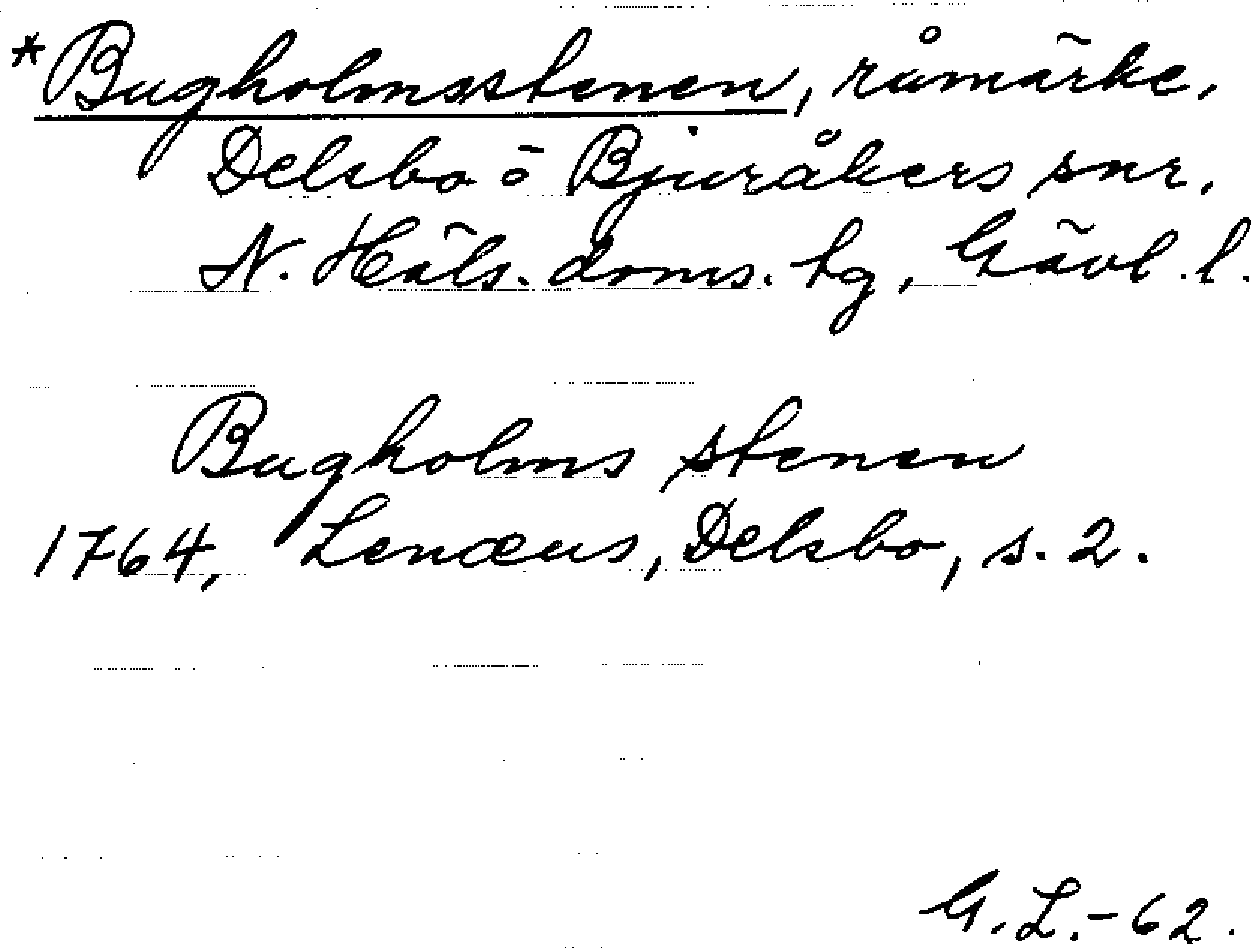 *Bugholmsstenen, råmärke,
Delsbo o Bjuråkers snr,
N. Häls. doms. hg, Gävl. l.
Bugholms stenen
1764, Lenæus, Delsbo, s. 2.
G. L. - 62.